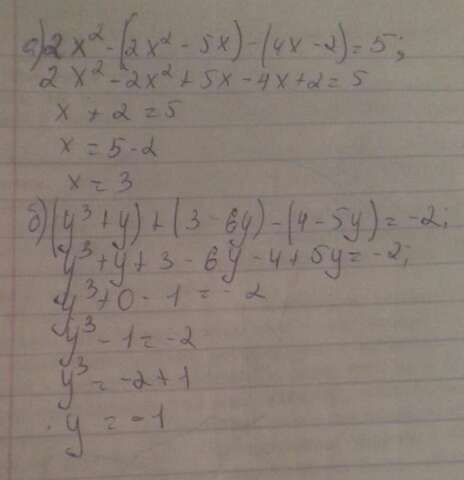 а) 2x² - (2x² - 5x) - (4x - 2) = 5;
2x² - 2x² + 5x - 4x + 2 = 5
x + 2 = 5
x = 5 - 2
x = 3
б) (y³ + y) + (3 - 6y) - (4 - 5y) = -2;
y³ + y + 3 - 6y - 4 + 5y = -2;
y³ + 0 - 1 = -2
y³ - 1 = -2
y³ = -2 + 1
y = -1